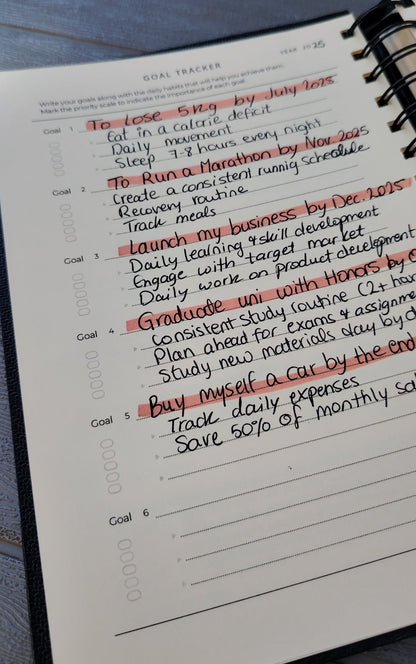 GOAL TRACKER
YEAR 2025
Write your goals along with the daily habits that will help you achieve them.
Mark the priority scale to indicate the importance of each goal.
Goal 1 To lose 5kg by July 2025
Eat in a calorie deficit
Daily movement
Sleep 7-8 hours every night
Goal 2 To Run a Marathon by Nov. 2025
Create a consistent runnig schedule
Recovery routine
Track meals
Goal 3 Launch my business by Dec. 2025
Daily learning & skill development
Engage with target market
Daily work on product development
Goal 4 Graduate uni with Honors by
consistent study routine (2+
Plan ahead for exams &
Study new materials day by
Goal 5 Buy myself a car by the end
Track daily expenses
Save 50% of monthly
Goal 6